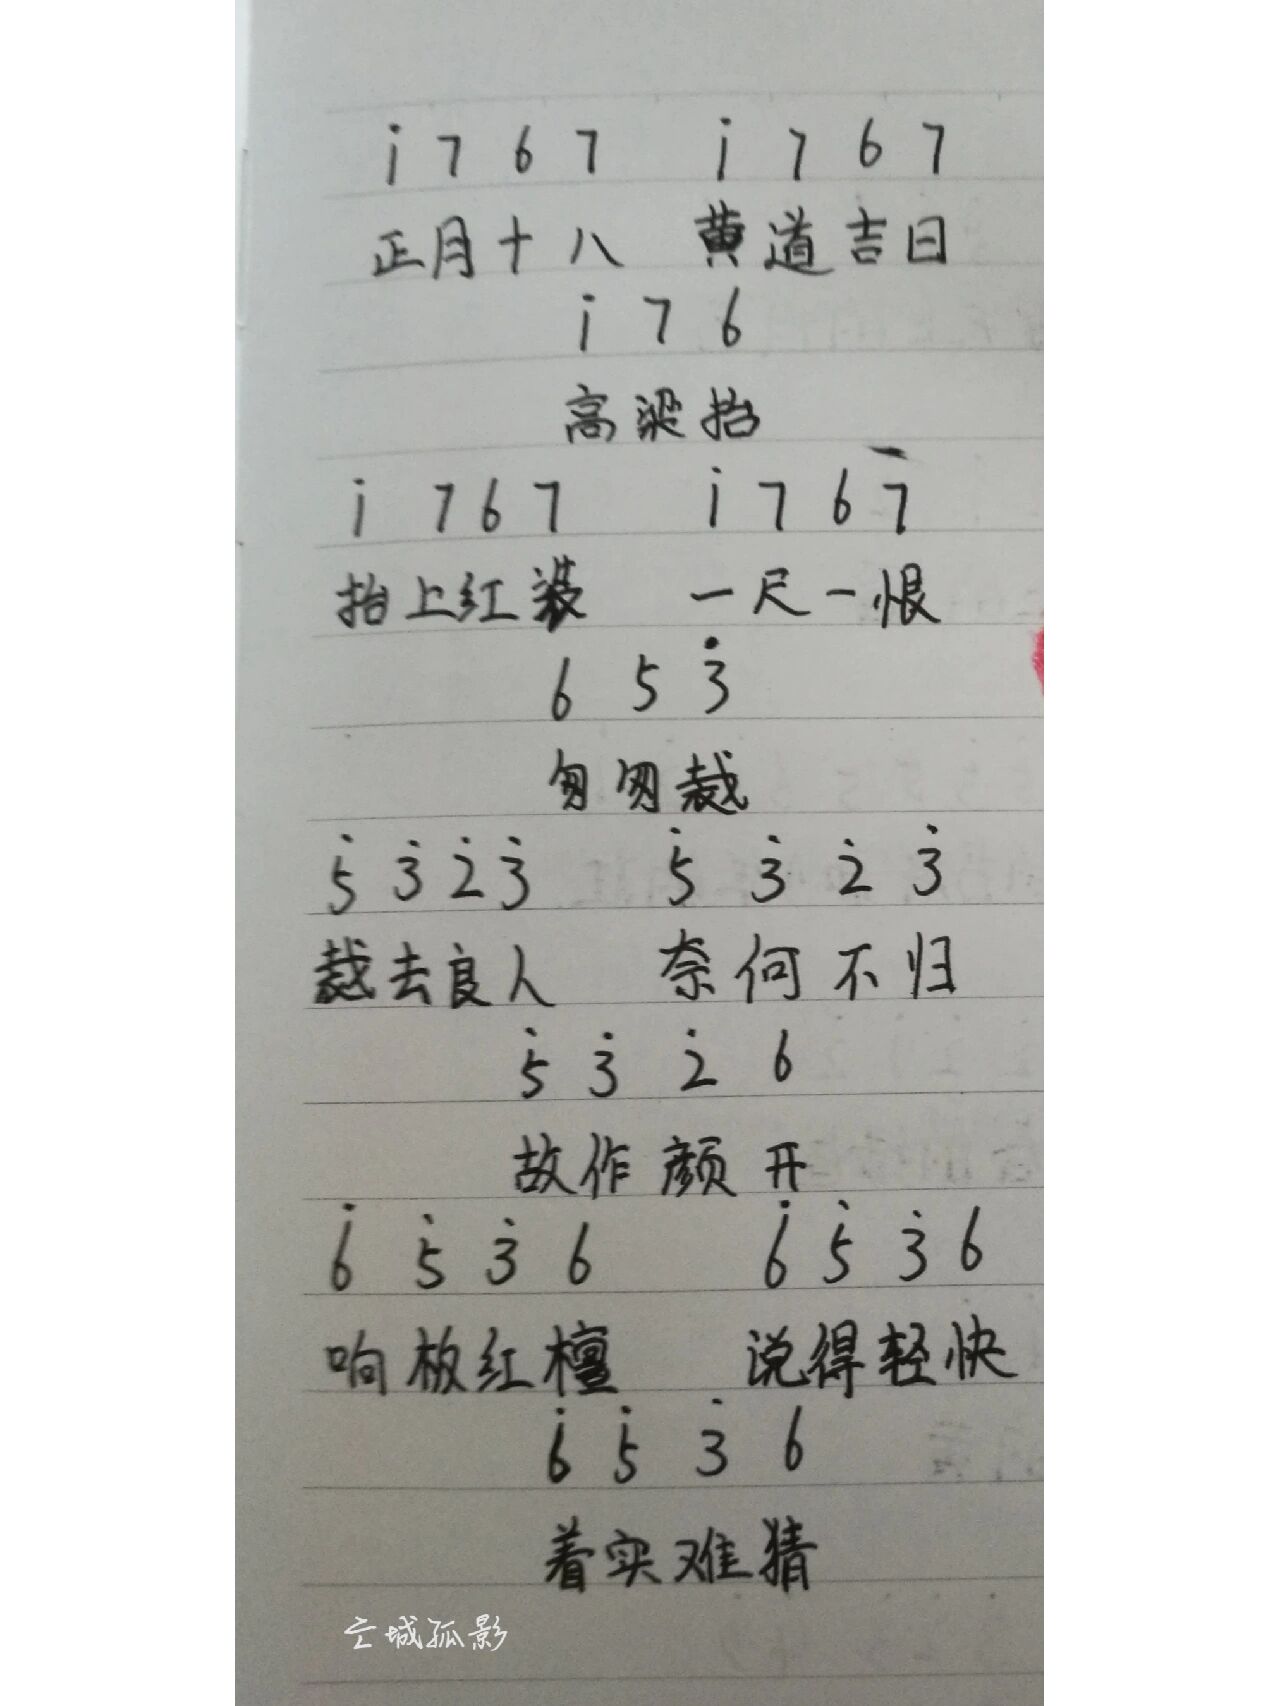 i̇ 7 6 7 i̇ 7 6 7
正月十八 黄道吉日
i̇ 7 6
高梁抬
i̇ 7 6 7 i̇ 7 6 7
抬上红装 一尺一恨
6 5 3̇
匆匆裁
5̇ 3̇ 2̇ 3̇ 5̇ 3̇ 2̇ 3̇
裁去良人 奈何不归
5̇ 3̇ 2̇ 6
故作颜开
6̇ 5̇ 3̇ 6 6̇ 5̇ 3̇ 6
响板红檀 说得轻快
6̇ 5̇ 3̇ 6
着实难猜
空城孤影